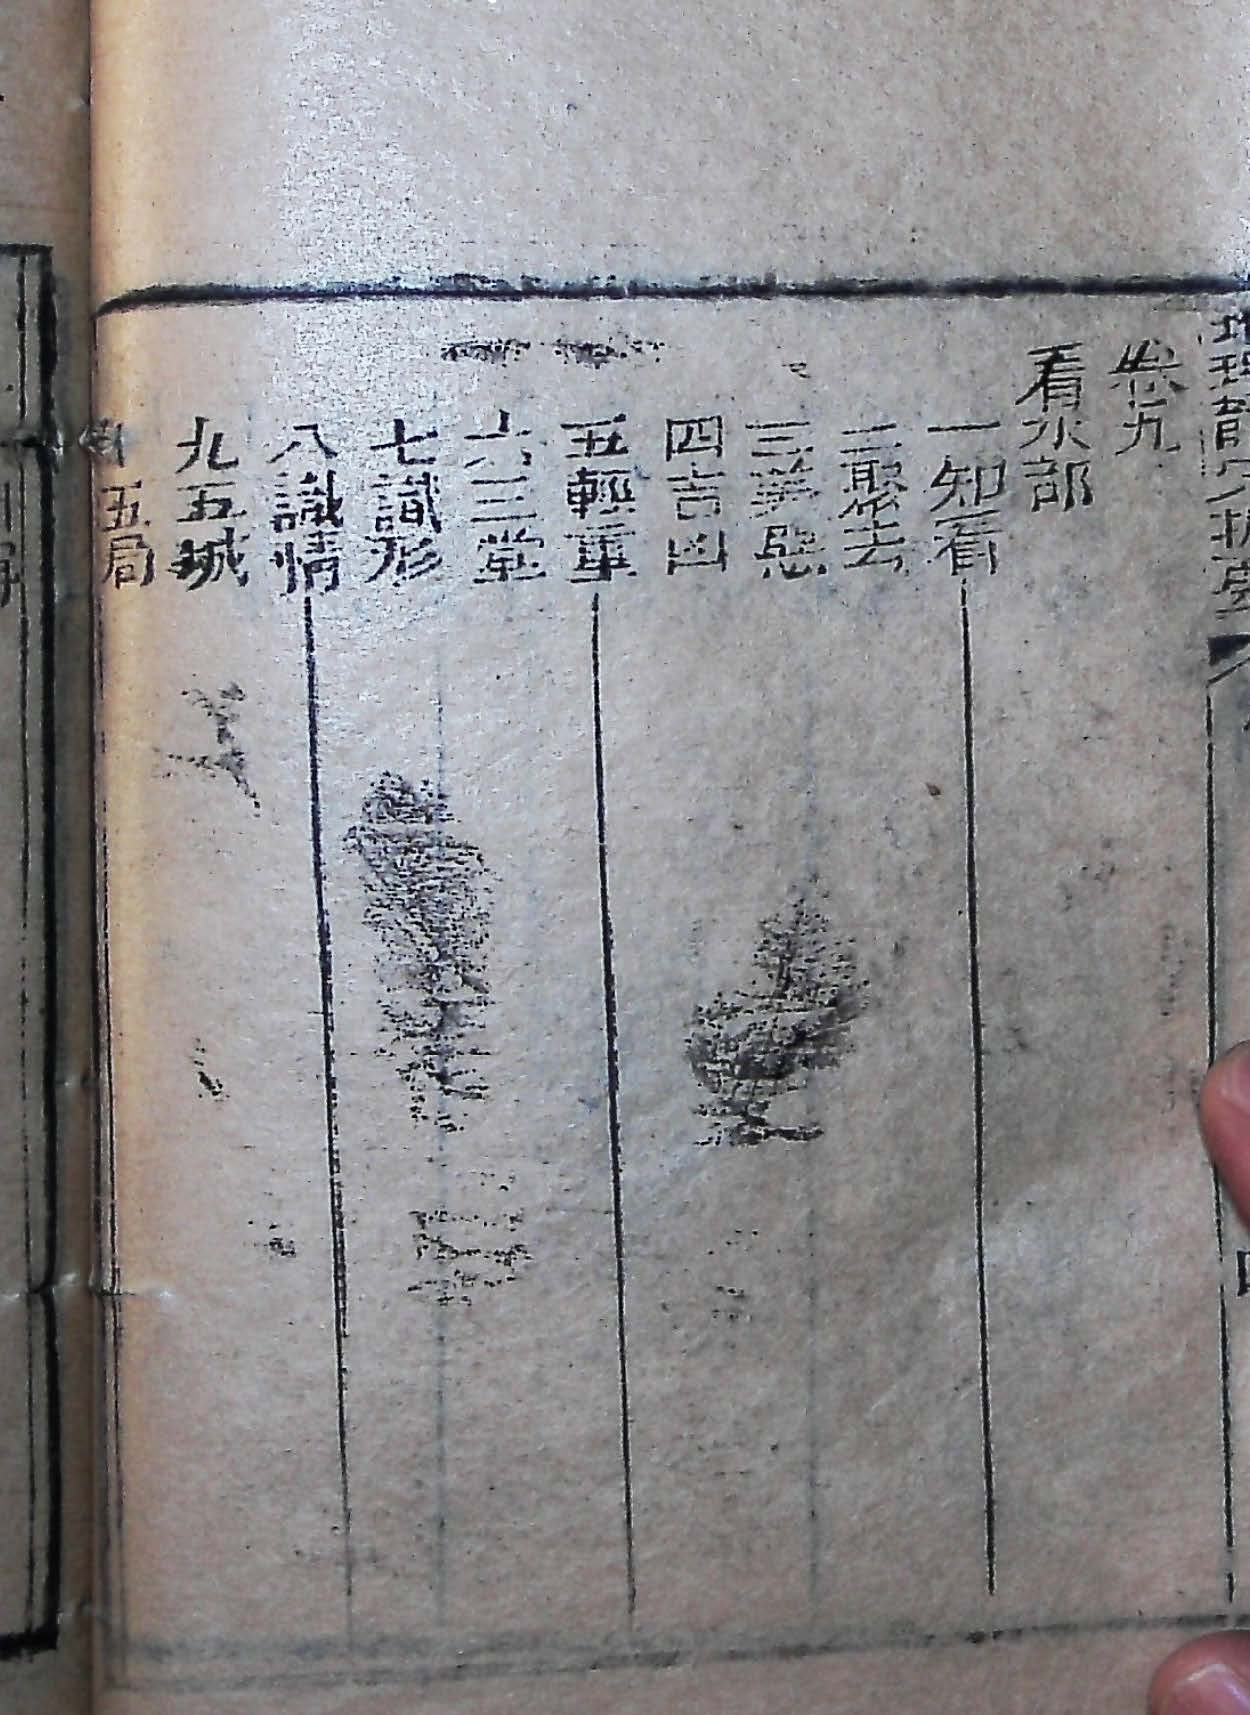 卷九
看水部
一知看
二聚去
三美惡
四吉凶
五輕重
六三堂
七識形
八識情
九五城
五局